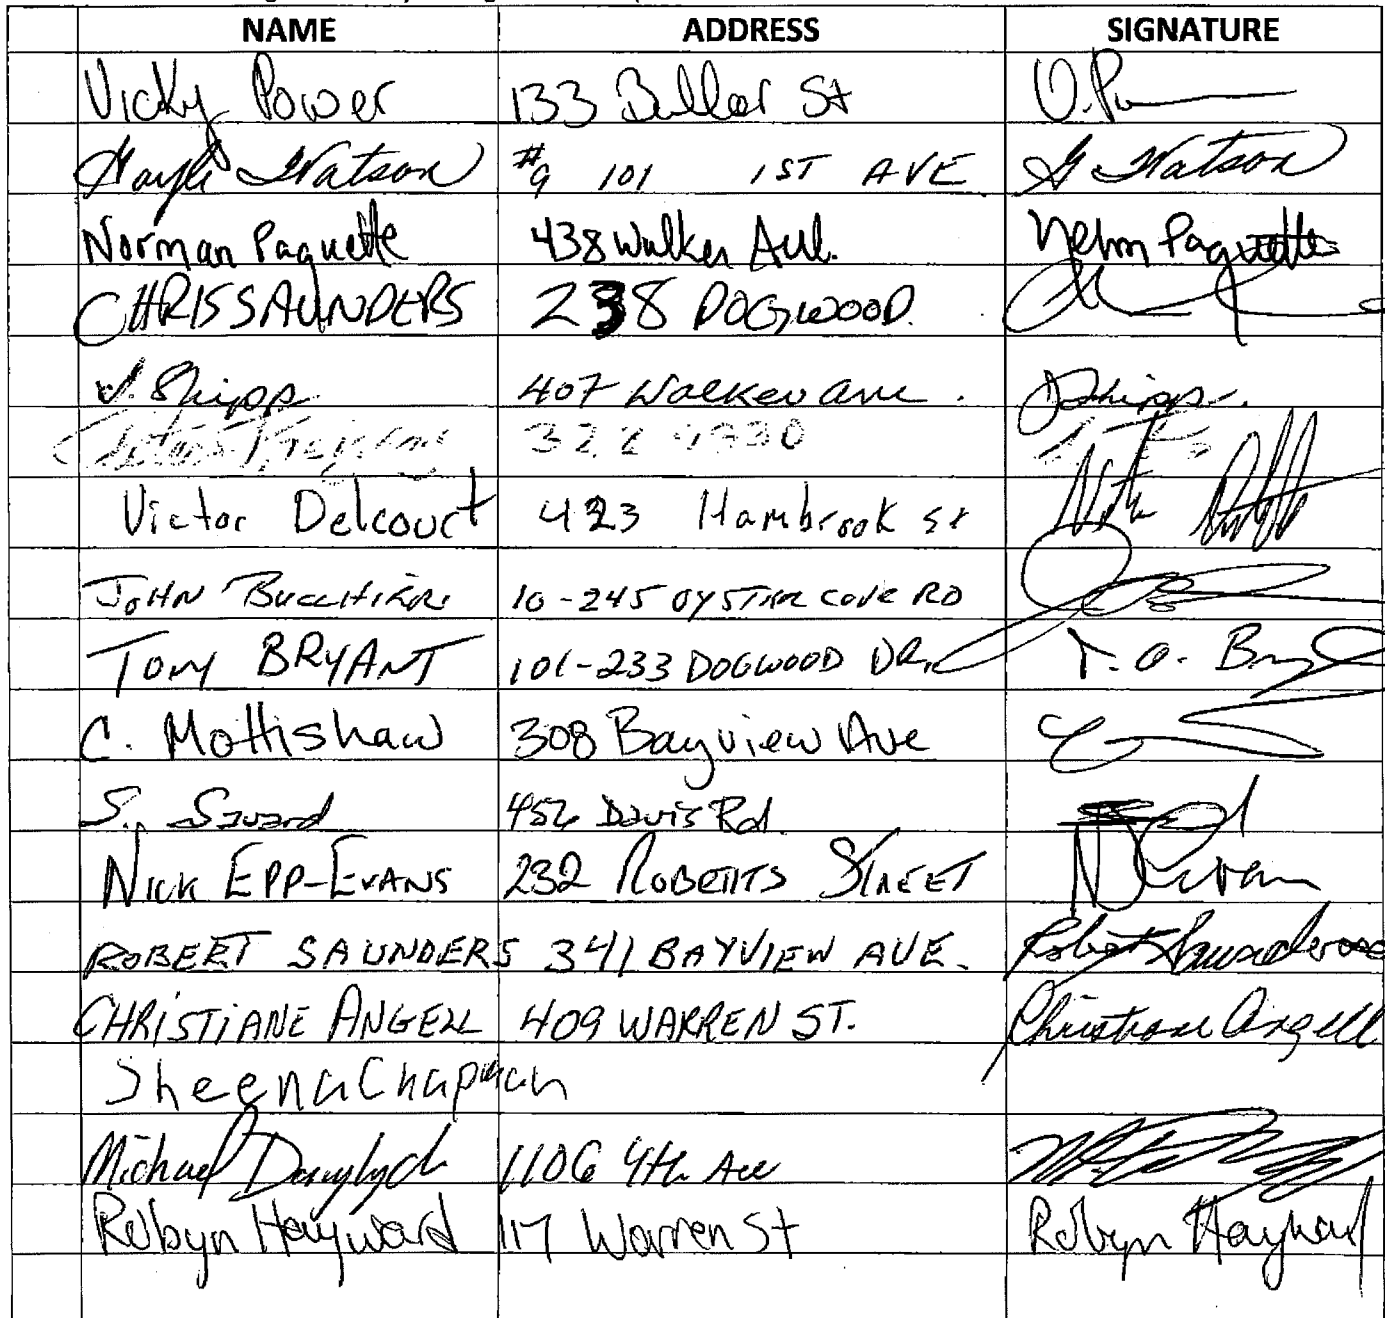 NAME ADDRESS SIGNATURE
Vicky Power 133 Buller St V. P
Gayle Watson #9 101 1ST AVE G Watson
Norman Paquette 438 Walker Ave. Paquette
CHRIS SAUNDERS 238 DOGWOOD.
J. Shipp 407 Walker Ave. J Shipp.
322
Victor Delcourt 423 Hambrook st
JOHN 10-245 OYSTER COVE RD
TOM BRYANT 101-233 DOGWOOD DR. T. O. B
C. Mottishaw 308 Bayview Ave
S. Savard 456 Davis Rd.
NICK EPP-EVANS 232 ROBERTS STREET N Evans
ROBERT SAUNDERS 341 BAYVIEW AVE. Robert Saunders
CHRISTIANE ANGELL 409 WARREN ST. Christiane Angell
Sheena Chapman
Michael Danylych 1106 4th Ave
Robyn Hayward 117 Warren St Robyn Hayward